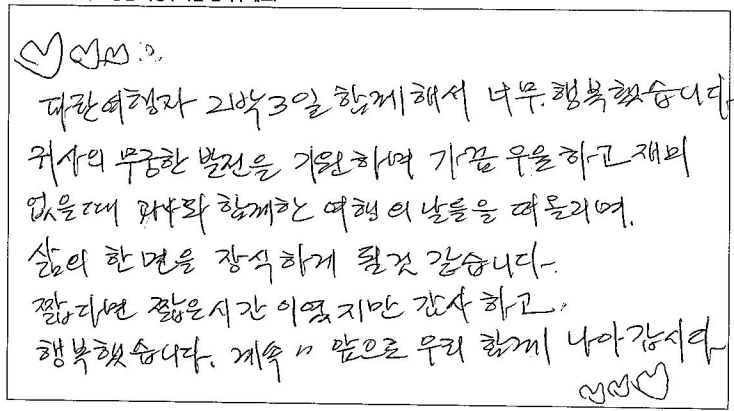 다란여행자 2박3일 함께해서 너무. 행복했습니다
귀사의 무궁한 발전을 기원하며 가끔 우울하고 재미
없을때 귀사와 함께한 여행의 날들을 떠올리며.
삶의 한면을 장식하게 될것 같습니다.
짧다면 짧은시간 이였지만 감사하고.
행복했습니다. 계속 〃 앞으로 우리 함께 나아갑시다